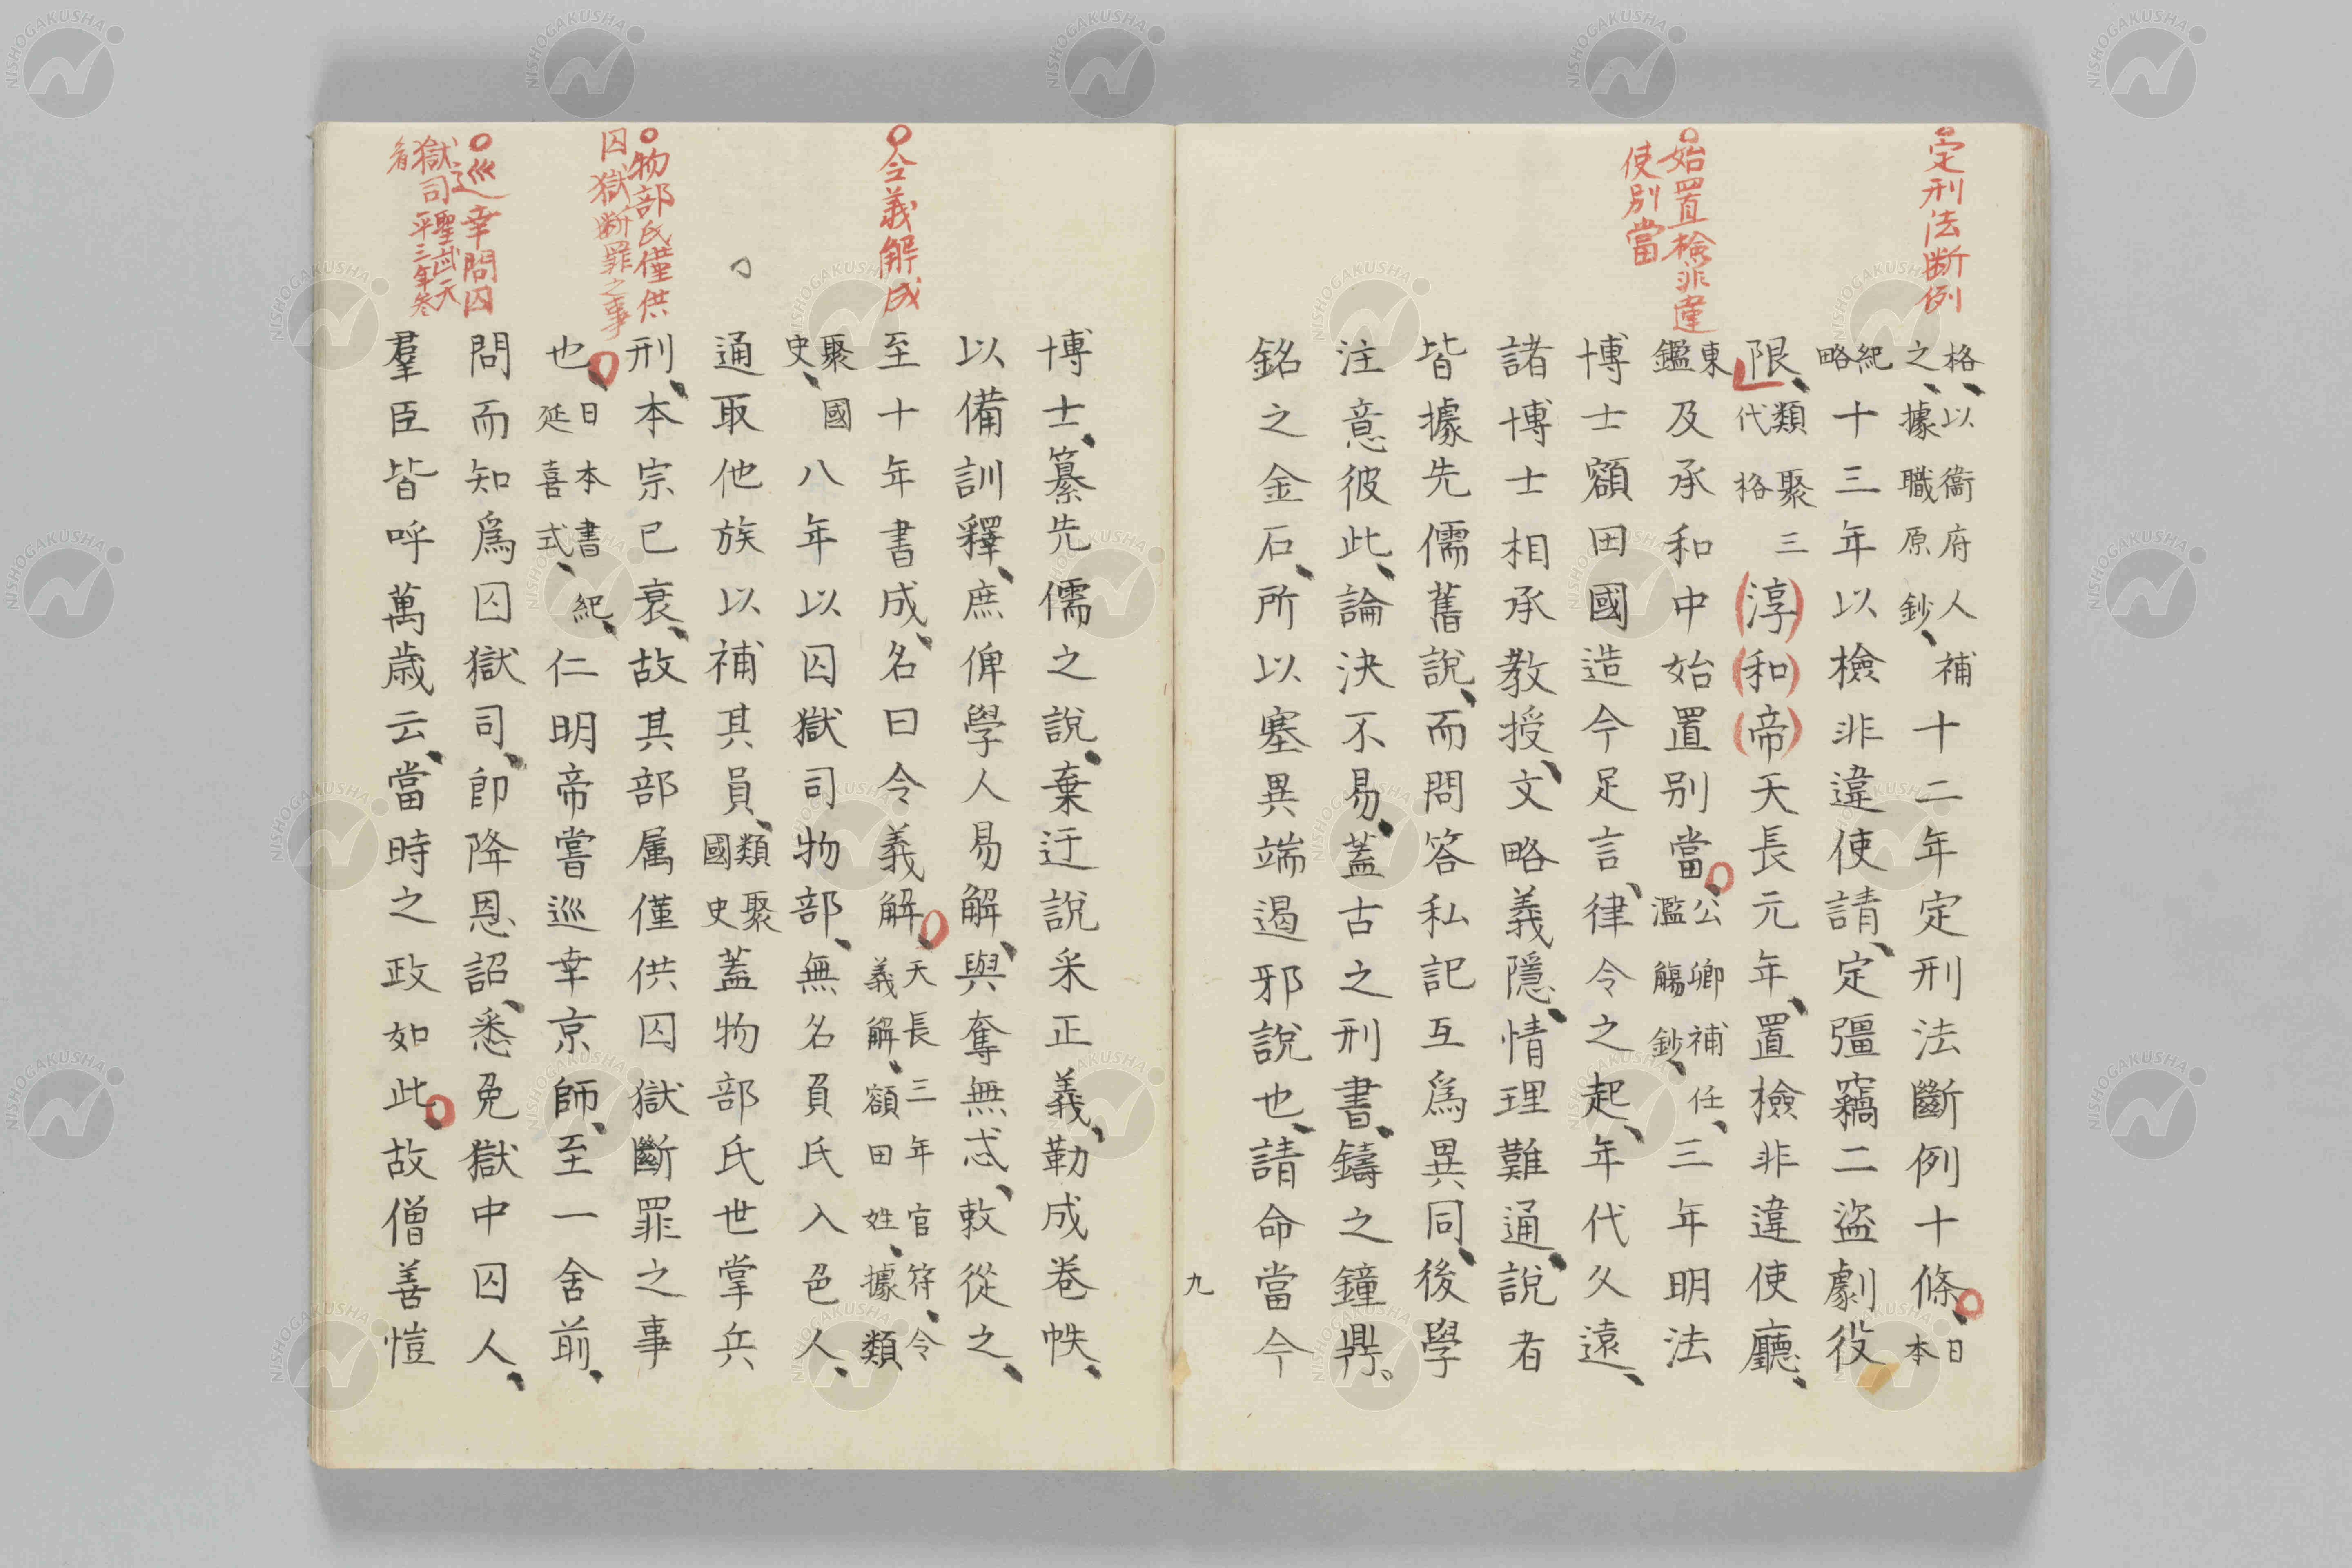 定刑法断例
始置檢非違
使別當
格、以衞府人補
之、據職原鈔、
十二年定刑法斷例十條、
日
本
紀
略
十三年以檢非違使請、定彊竊二盜劇役
限、
類聚三
代格
(淳)(和)(帝)天長元年、置檢非違使廳、
東
鑑
及承和中始置別當、
公卿補任、
濫觴鈔、
三年明法
博士額田國造今足言、律令之起、年代久遠、
諸博士相承教授、文略義隱、情理難通、說者
皆據先儒舊說、而問答私記互爲異同、後學
注意彼此、論決不易、蓋古之刑書、鑄之鐘鼎。
銘之金石、所以塞異端遏邪說也、請命當今
九
令義解成
物部氏僅供
囚獄断罪之事
巡幸問囚
獄司
聖武天
平三年
博士、纂先儒之說、棄迂說采正義、勒成卷帙、
以備訓釋、庶俾學人易解、與奪無忒、敕從之、
至十年書成、名曰令義解
天長三年官符、令
義解、額田姓、據類
聚國
史、
八年以囚獄司物部、無名負氏入色人、
通取他族以補其員、
類聚
國史
蓋物部氏世掌兵
刑、本宗已衰、故其部属僅供囚獄斷罪之事
也、
日本書紀、
延喜式、
仁明帝嘗巡幸京師、至一舍前、
問而知爲囚獄司、卽降恩詔、悉免獄中囚人、
羣臣皆呼萬歳云、當時之政如此、故僧善愷
NISHOGAKUSHA